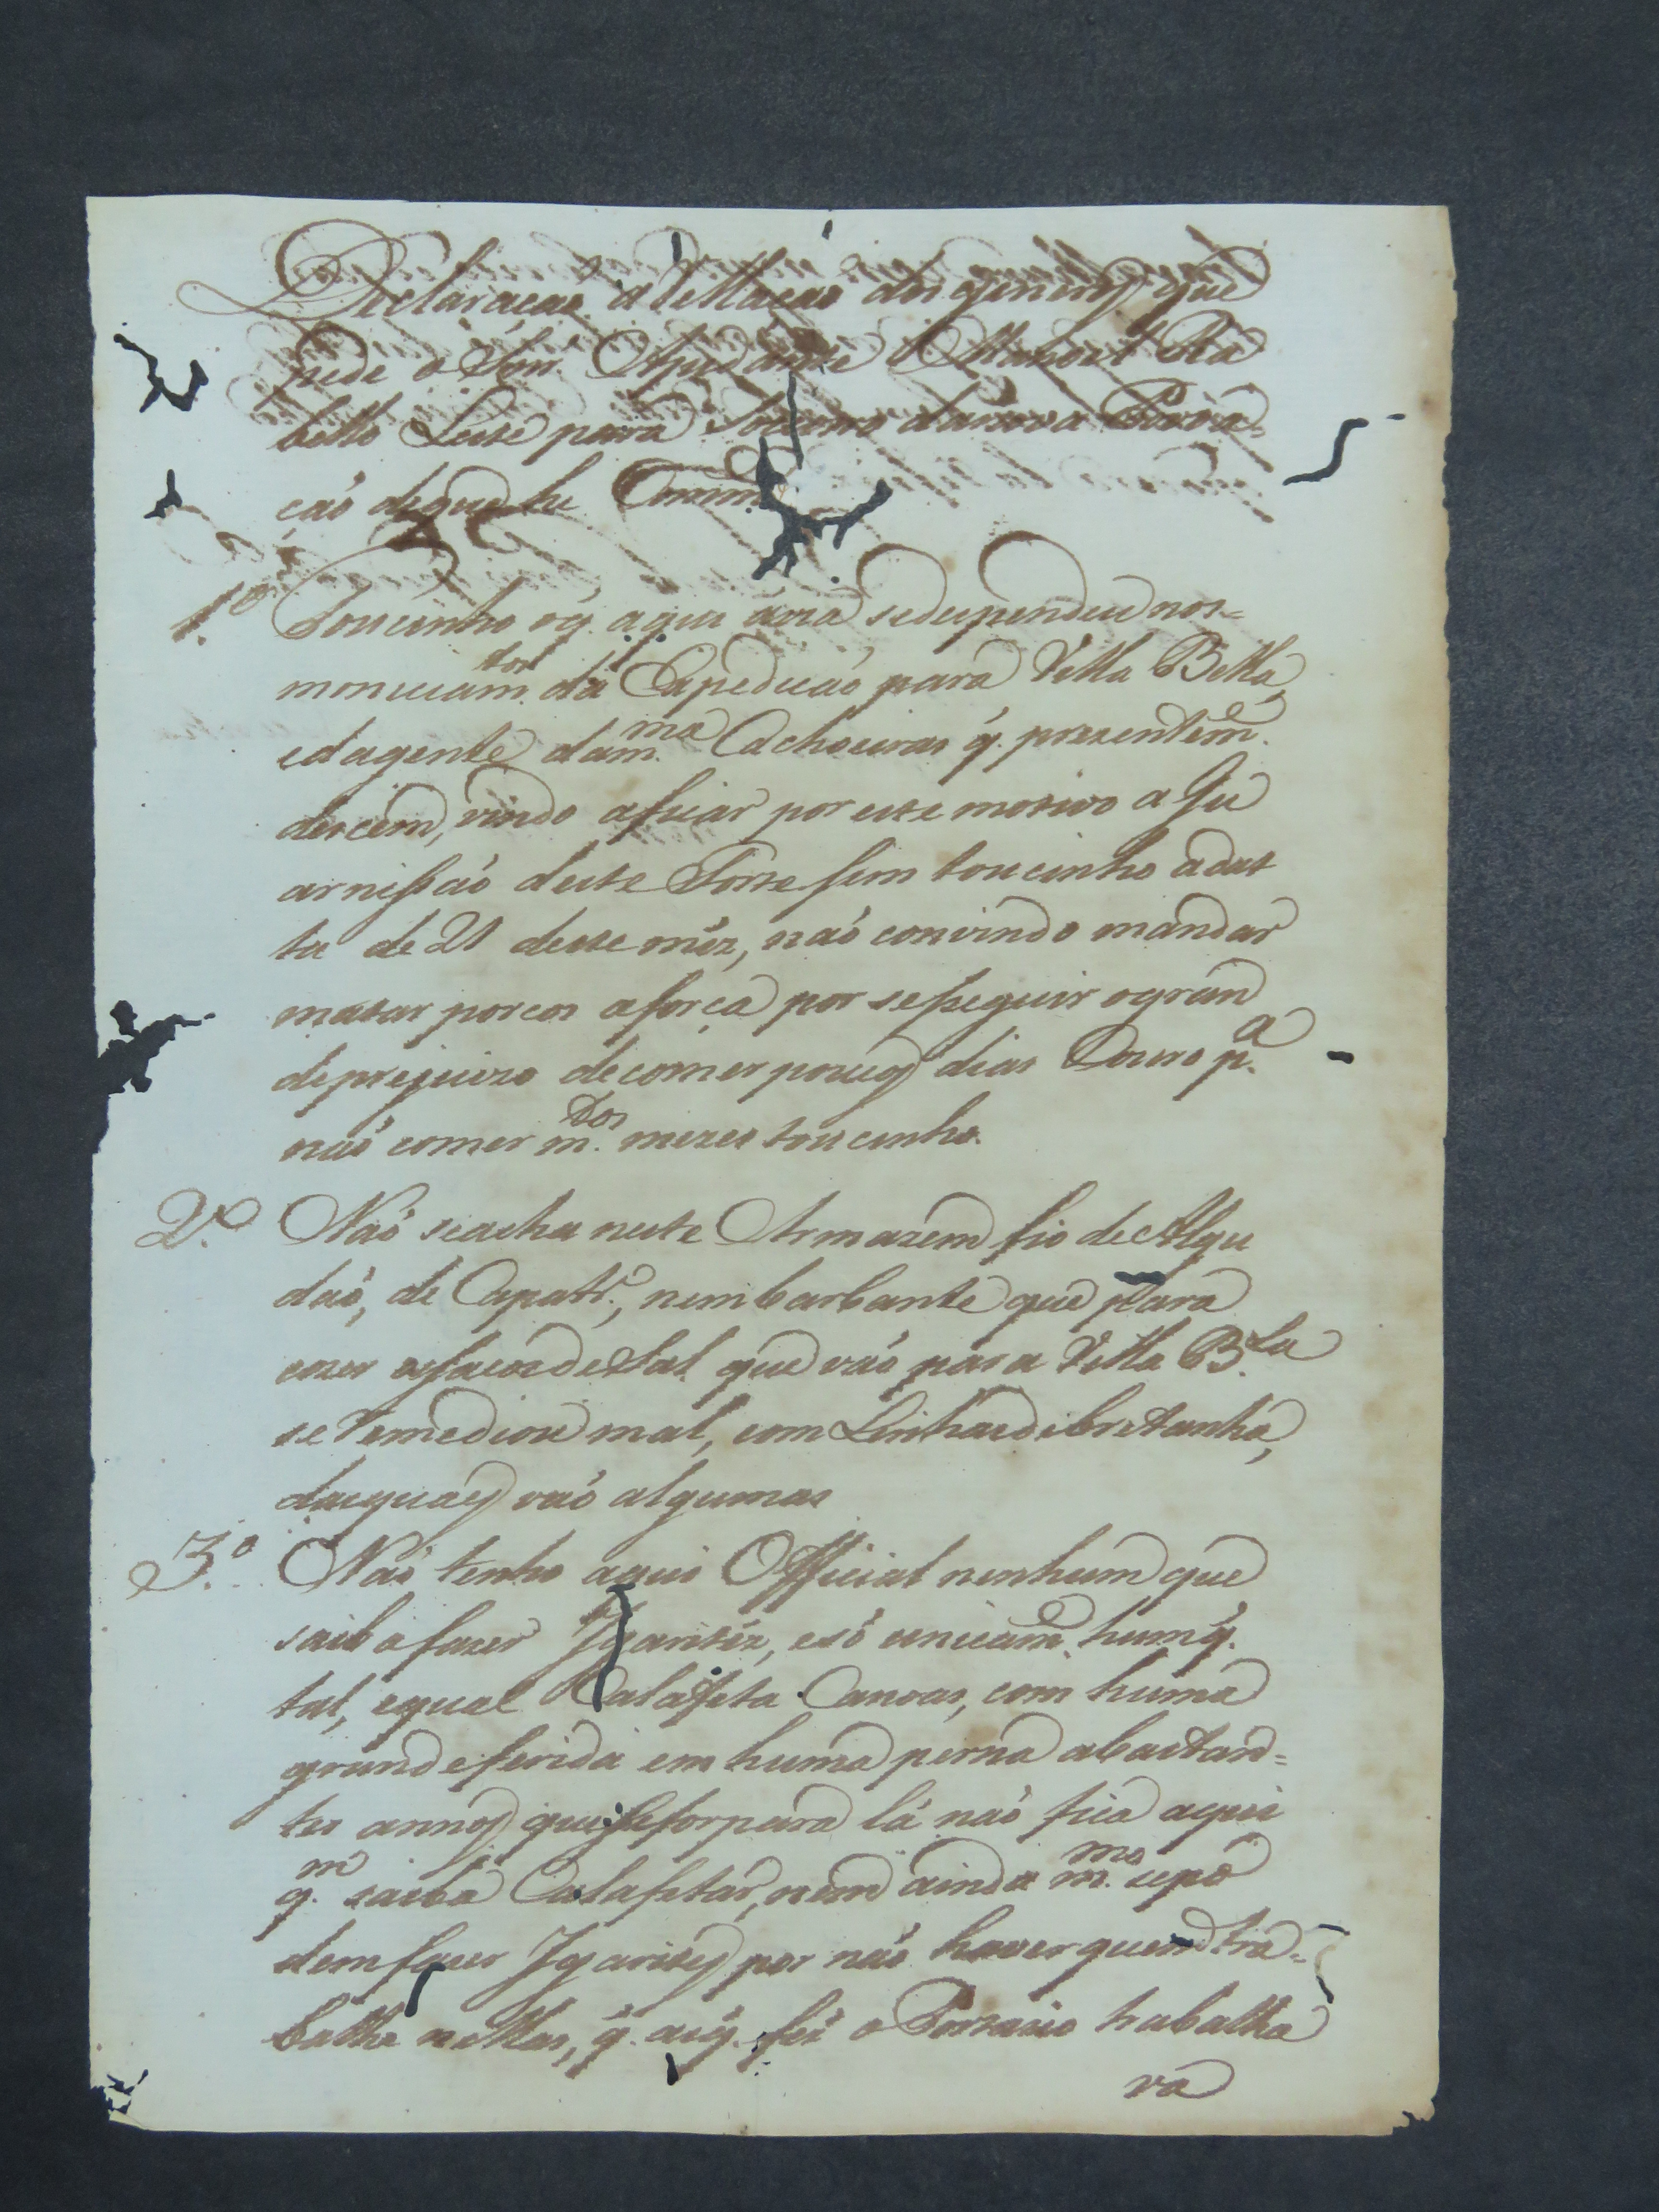 Declaracaó á Rellacaó dos generos que
pede o Snr. Ajudante Manoel Re
bello Leite para Socorro danova Povoa=
caó deque he Comm.
1.º Toucinho o q. aqui avia sedespendeu nos=
moniciam.tos da Expedicaó para Villa Bella,
edagente dam.ma Cachoeiras q̃. prezentem.e
descem, vindo aficar por este motivo a Gu
arnissaó deste Forte sem toucinho adat
ta de 21 deste mêz, naó convindo mandar
matar porcos aforça por sesseguir ogran
deprejuizo decomer poucos dias Couro p.a
naó comer m.tos mezes toucinho.
2.º Naó seacha neste Armazem fio de Algu
daó, de Çapatr.o, nem barbante que para
cozer ossacos de Sal que vaó para Villa B.la
se remediou mal, com Linhas de bretanha,
dasquaes vaó algumas
3.º Naó tenho aqui Official nenhum que
saiba fazer Ygaritéz, esó unicam.e hum q̃.
tal, equal Calafeta Canoas, com huma
grande ferida em huma perna abastan=
tes annos que sefor para lá naó fica aqui
q.m saiba Calafetar, nem ainda m.mo sepo
dem fazer Ygarites por naó haver quem tra=
balhe nellas, q̃. aiq̃. fes o Forzario trabalha
va